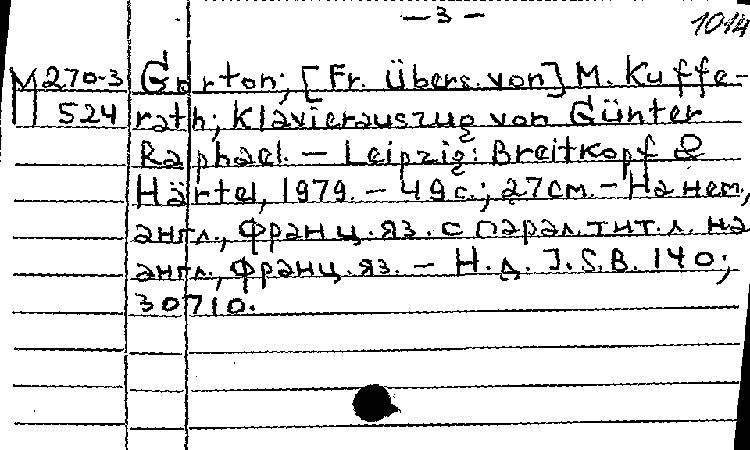 — 3 —
1014
М 270-3
524
Gorton; [Fr. Übers. von] M. Kuffe-
rath; Klavierauszug von Günter
Raphael. — Leipzig: Breitkopf &
Härtel, 1979. — 49 с.; 27 см. — На нем.,
англ., франц. яз. с парал. тит. л. на
англ., франц. яз. — Н. д. J.S.B. 140;
30710.